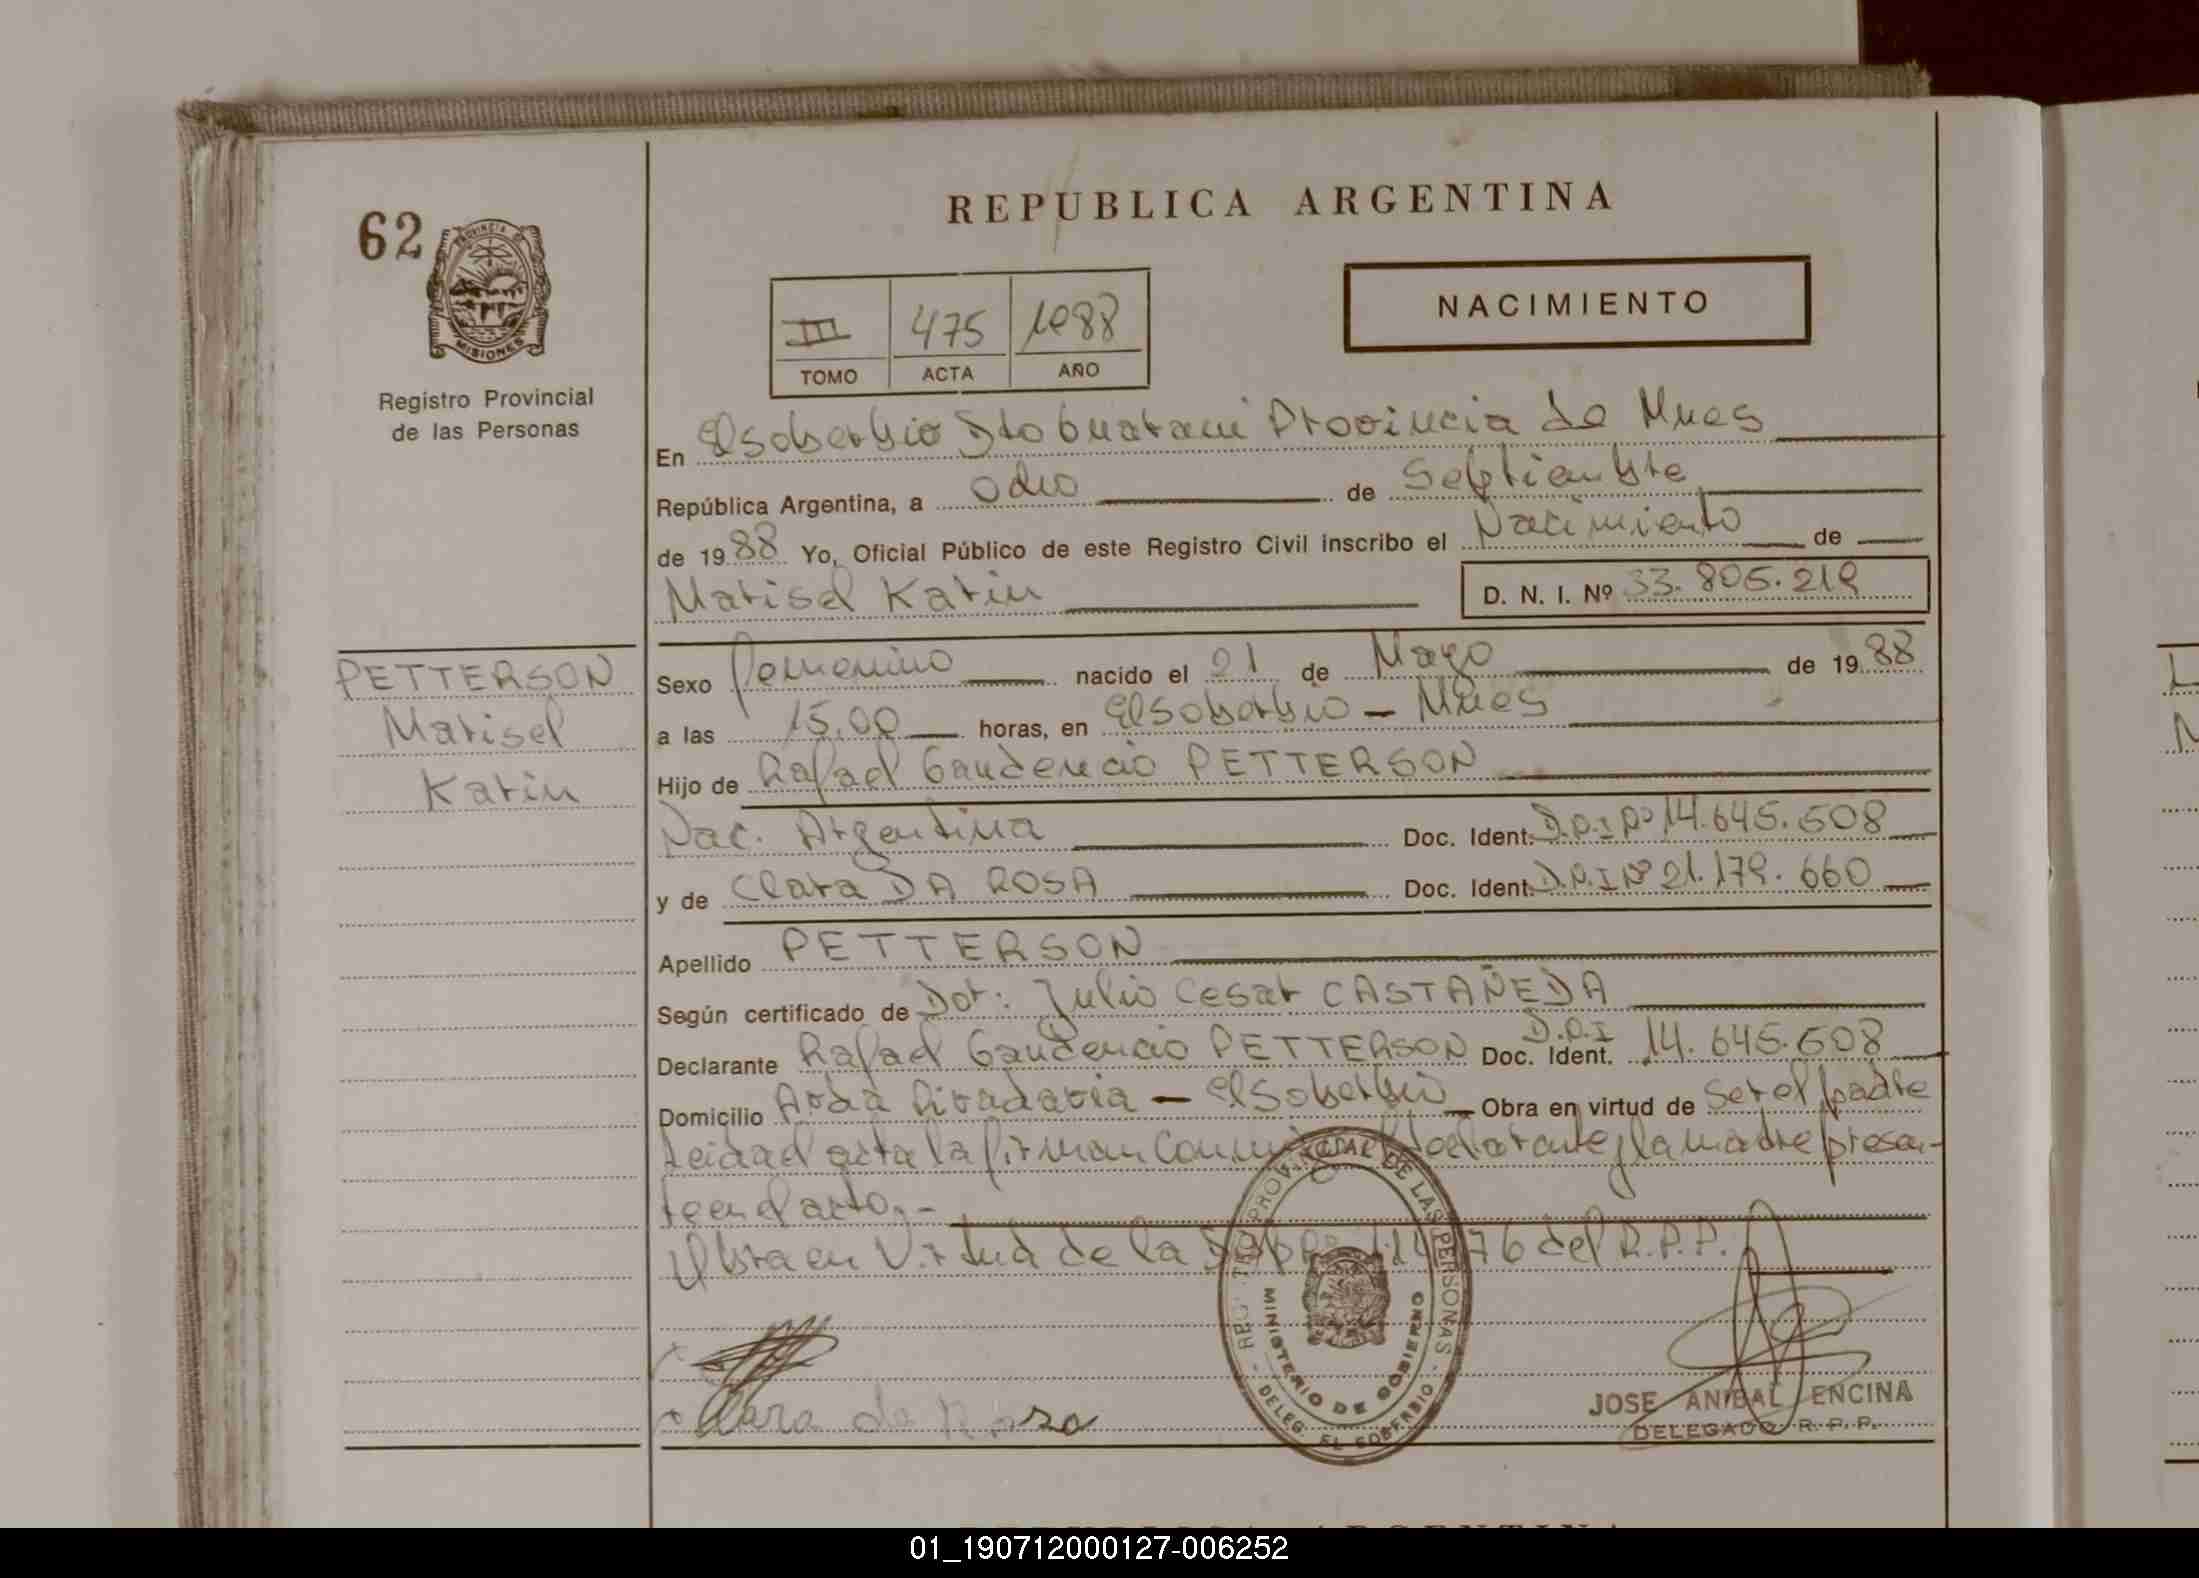 REPUBLICA ARGENTINA
62
PROVINCIA DE
MISIONES
Registro Provincial
de las Personas
NACIMIENTO
III 475 1988
TOMO ACTA AÑO
En El soberbio Dto Guarani Provincia de Mnes
República Argentina, a ocho de Septiembre
de 1988 Yo, Oficial Público de este Registro Civil inscribo el Nacimiento de
Marisel Karin D. N. I. Nº 33.805.219
PETTERSON
Marisel
Karin
Sexo femenino nacido el 21 de Mayo de 1988
a las 15,00 horas, en El soberbio - Mnes
Hijo de Rafael Gaudencio PETTERSON
Nac. Argentina Doc. Ident. D.N.I Nº 14.645.508
y de Clara DA ROSA Doc. Ident. D.N.I Nº 21.179.660
Apellido PETTERSON
Según certificado de Dor: Julio Cesar CASTAÑEDA
Declarante Rafael Gaudencio PETTERSON Doc. Ident. D.N.I 14.645.508
Domicilio Avda Rivadavia - El Soberbio Obra en virtud de ser el padre
Leida el acta la firman conmigo el declarante y la madre presen-
te en el acto.-
Obra en Virtud de la 76 del R.P.P.
REG. PROVINCIAL DE LAS PERSONAS
MINISTERIO DE GOBIERNO
DELEG. EL SOBERBIO
Clara da Rosa
JOSE ANIBAL ENCINA
DELEGADO R. P. P.
01_190712000127-006252